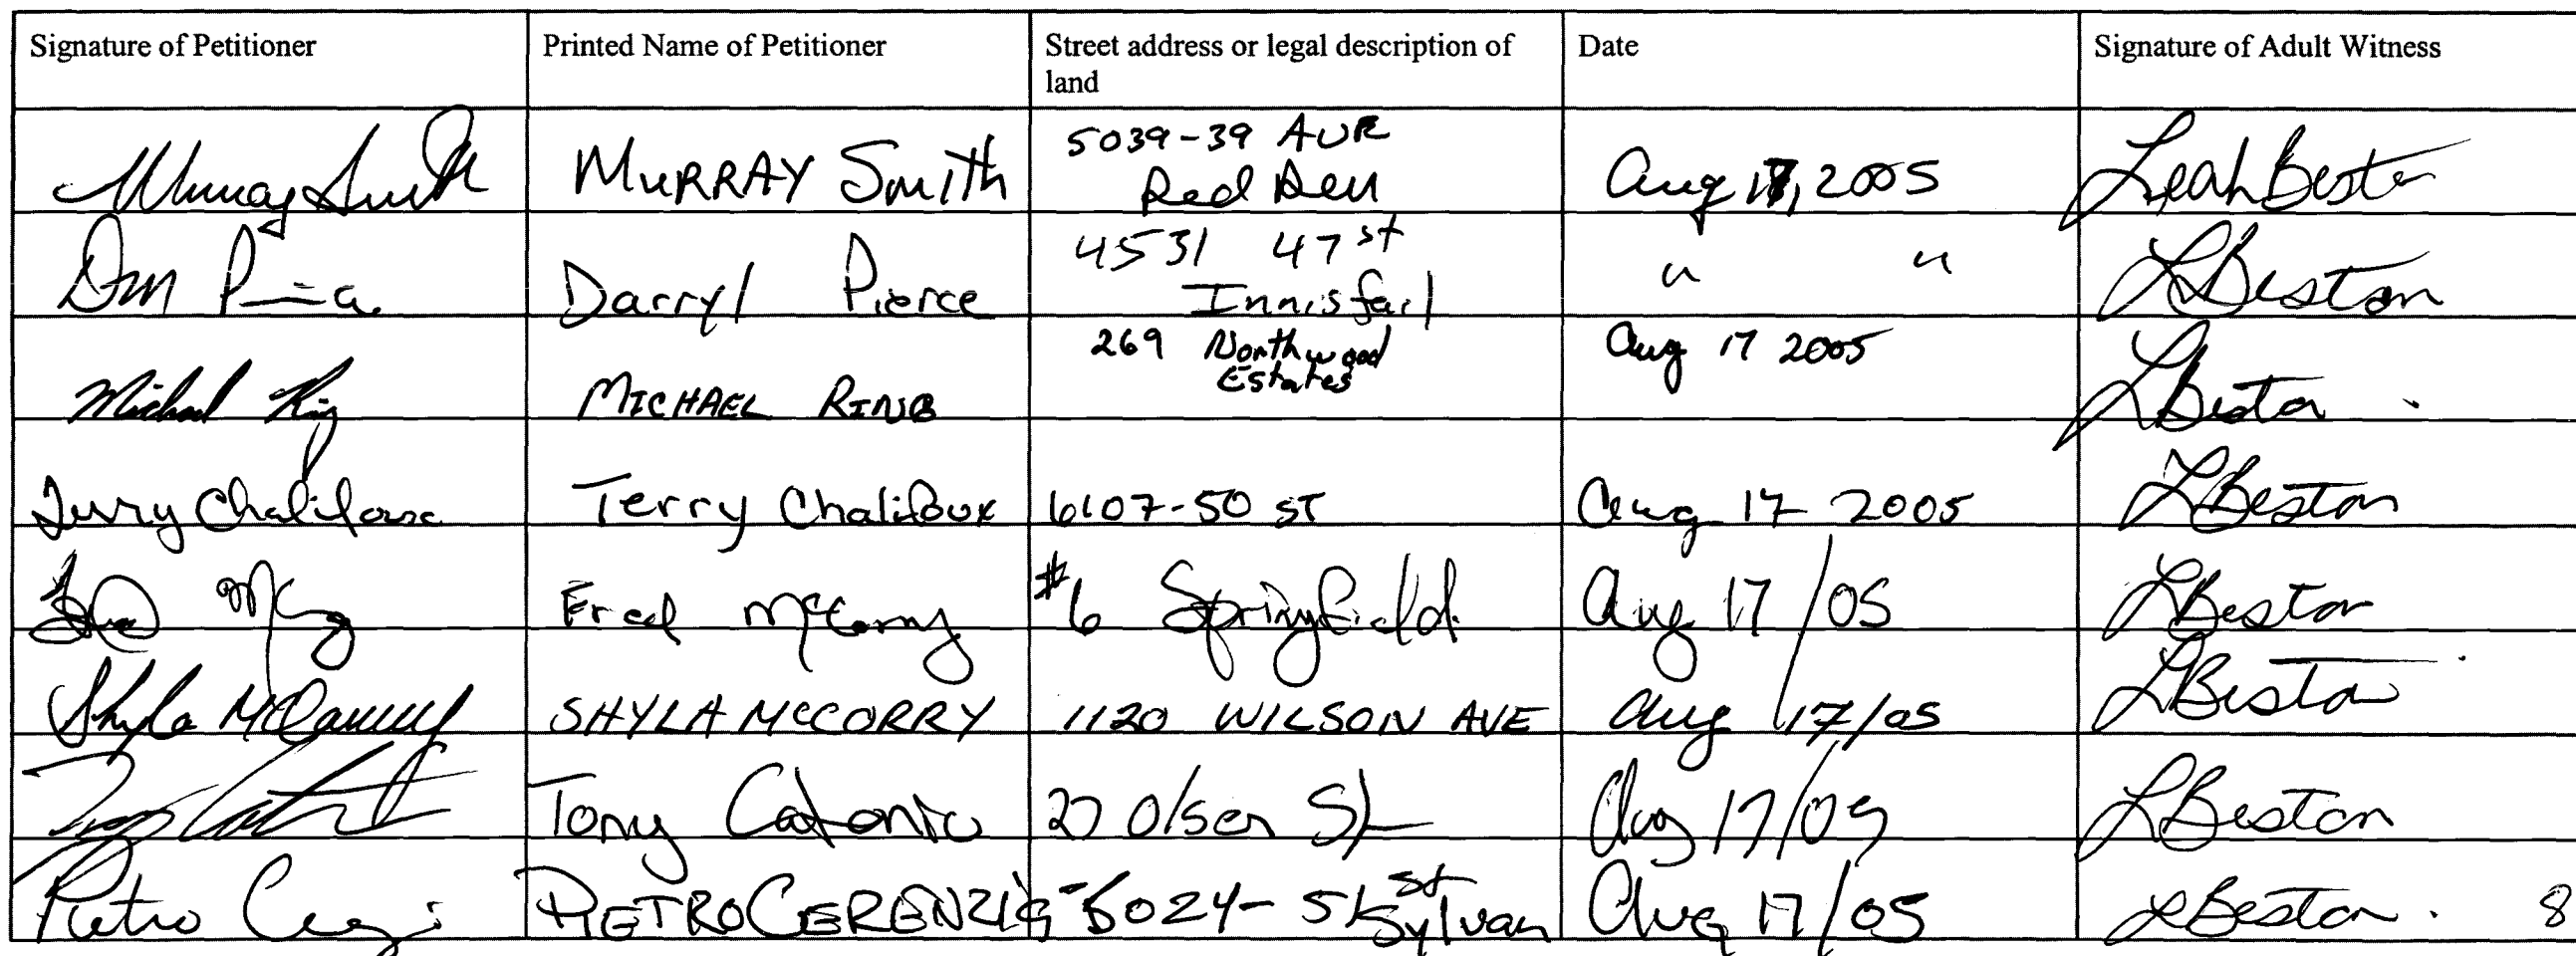 Signature of Petitioner Printed Name of Petitioner Street address or legal description of land Date Signature of Adult Witness
Murray Smith MURRAY Smith 5039-39 AVE Red Deer Aug 17, 2005 Leah Beston
Darryl Pierce 4531 47 st Innisfail " " LBeston
Michael Ring MICHAEL RING 269 Northwood Estates Aug 17 2005 LBeston
Terry Chalifoux Terry Chalifoux 6107-50 ST Aug 17 2005 LBeston
Fred McCorry #6 Springfield Aug 17/05 LBeston
Shyla McCorry SHYLA McCORRY 1120 WILSON AVE Aug 17/05 LBeston
Tony 27 Olsen St Aug 17/05 LBeston
Pietro PIETRO CERENZIA 5024- 51 st Sylvan Aug 17/05 LBeston. 8